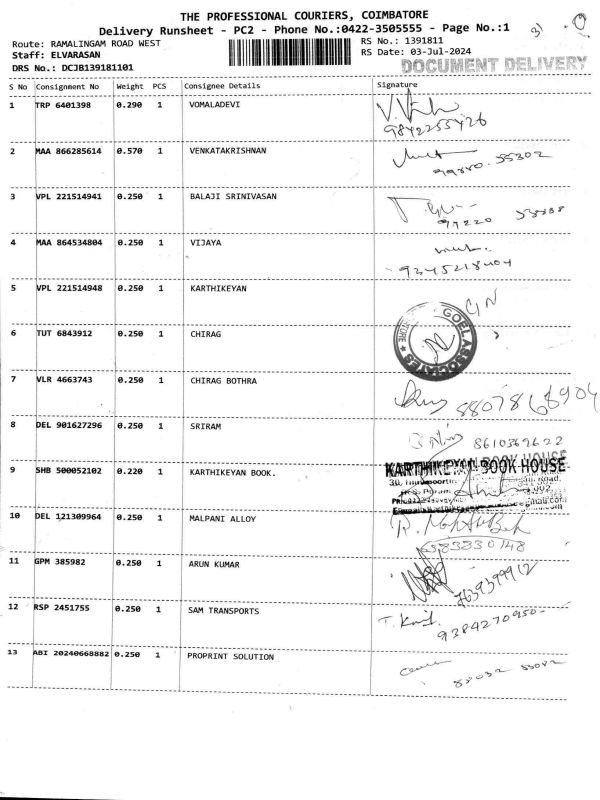 THE PROFESSIONAL COURIERS, COIMBATORE
Delivery Runsheet - PC2 - Phone No.:0422-3505555 - Page No.:1
Route: RAMALINGAM ROAD WEST
RS No.: 1391811
Staff: ELVARASAN
RS Date: 03-Jul-2024
DRS No.: DCJB139181101
DOCUMENT DELIVERY
S No Consignment No Weight PCS Consignee Details Signature
1 TRP 6401398 0.290 1 VOMALADEVI
9842255426
2 MAA 866285614 0.570 1 VENKATAKRISHNAN
55302
3 VPL 221514941 0.250 1 BALAJI SRINIVASAN
99220
4 MAA 864534804 0.250 1 VIJAYA
9345218404
5 VPL 221514948 0.250 1 KARTHIKEYAN
GOEL ASSOCIATES
6 TUT 6843912 0.250 1 CHIRAG
7 VLR 4663743 0.250 1 CHIRAG BOTHRA
8807868904
8 DEL 901627296 0.250 1 SRIRAM
8610369622
9 SHB 500052102 0.220 1 KARTHIKEYAN BOOK.
KARTHIKEYAN BOOK HOUSE
10 DEL 121309964 0.250 1 MALPANI ALLOY
11 GPM 385982 0.250 1 ARUN KUMAR
12 RSP 2451755 0.250 1 SAM TRANSPORTS
9384270950
13 ABI 20240668882 0.250 1 PROPRINT SOLUTION